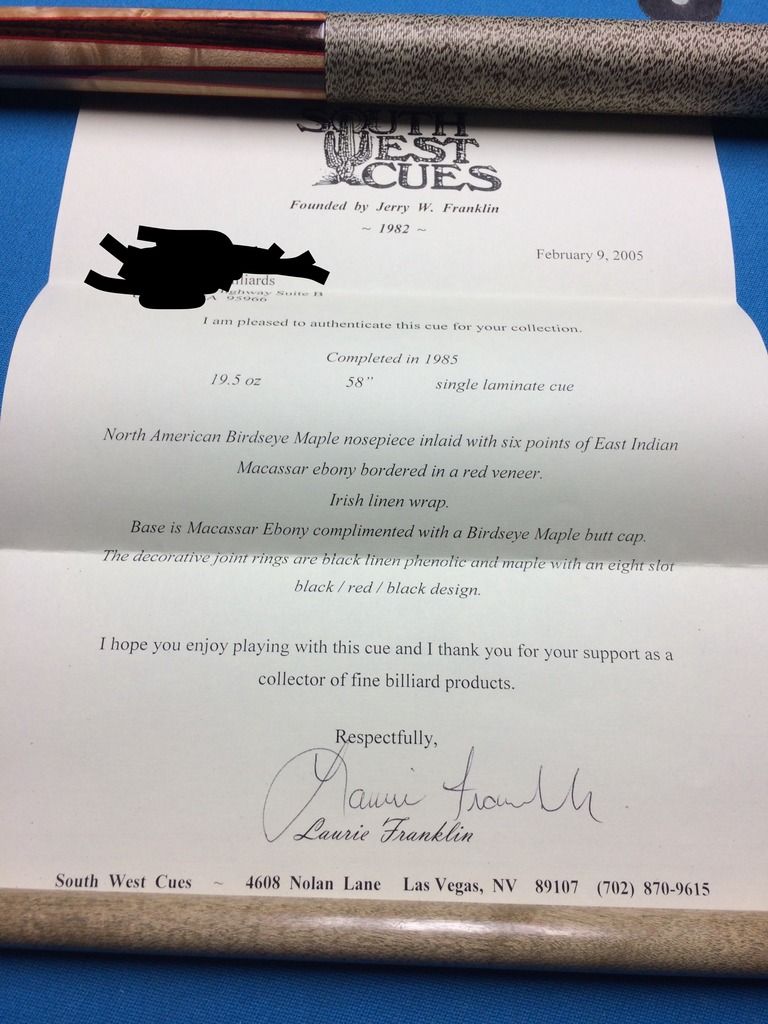 SOUTH
WEST
CUES
Founded by Jerry W. Franklin
~ 1982 ~
February 9, 2005
Suite B
A 95966
I am pleased to authenticate this cue for your collection.
Completed in 1985
19.5 oz 58” single laminate cue
North American Birdseye Maple nosepiece inlaid with six points of East Indian
Macassar ebony bordered in a red veneer.
Irish linen wrap.
Base is Macassar Ebony complimented with a Birdseye Maple butt cap.
The decorative joint rings are black linen phenolic and maple with an eight slot
black / red / black design.
I hope you enjoy playing with this cue and I thank you for your support as a
collector of fine billiard products.
Respectfully,
Laurie Franklin
Laurie Franklin
South West Cues ~ 4608 Nolan Lane Las Vegas, NV 89107 (702) 870-9615